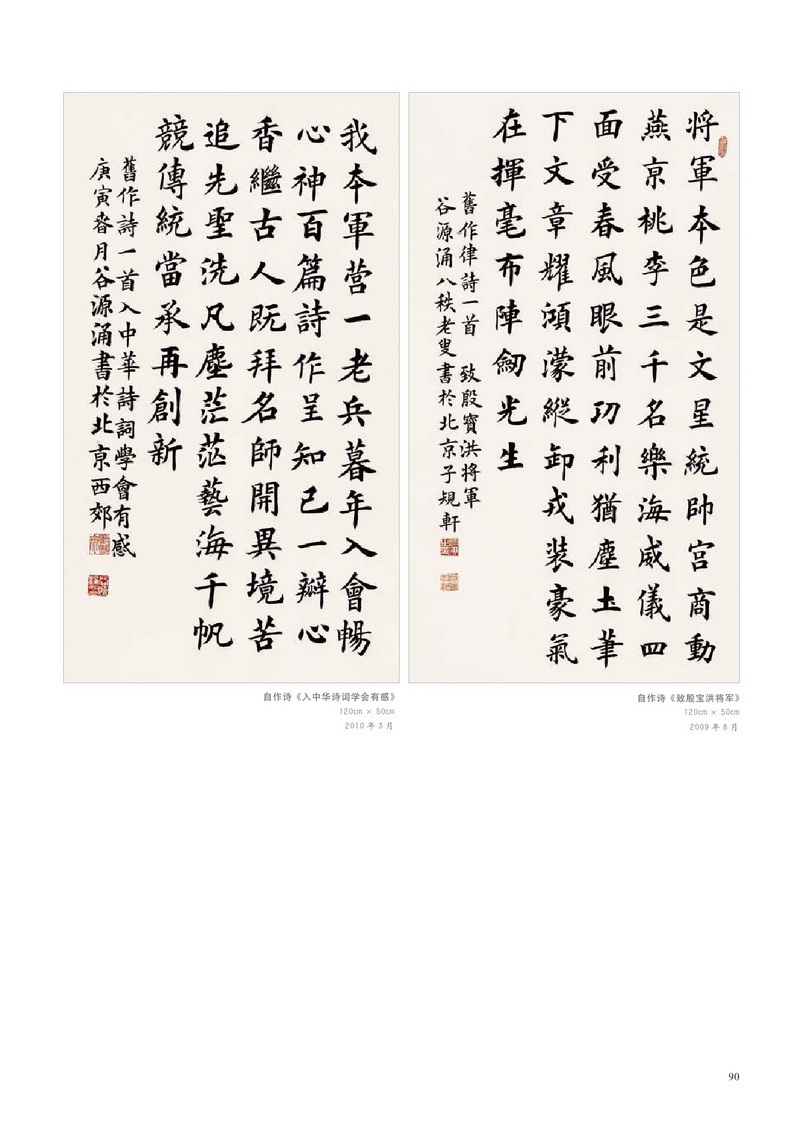 將軍本色是文星統帥宮商動
燕京桃李三千名樂海威儀四
面受春風眼前功利猶塵土筆
下文章耀澒濛縱卸戎装豪氣
在揮毫布陣劒光生
舊作律詩一首 致殷寶洪將軍
谷源涌八秩老叟書於北京子規軒
自作诗《致殷宝洪将军》
120cm × 50cm
2009 年 8 月
我本軍营一老兵暮年入會暢
心神百篇詩作呈知己一瓣心
香繼古人既拜名師開異境苦
追先聖洗凡塵茫茫藝海千帆
競傳統當承再創新
舊作詩一首入中華詩詞學會有感
庚寅春月谷源涌書於北京西郊
自作诗《入中华诗词学会有感》
120cm × 50cm
2010 年 3 月
90